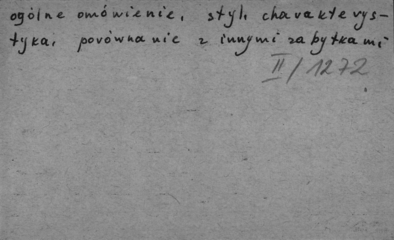 ogólne omówienie, styl, charakterys-
tyka, porównanie z innymi zabytkami
II/1272